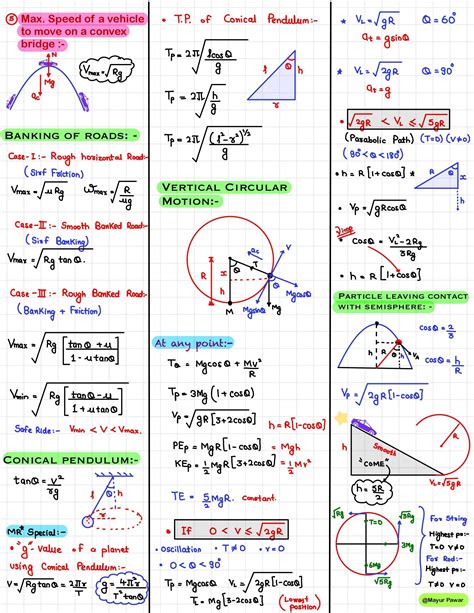 ⑤ Max. Speed of a vehicle
to move on a convex
bridge :-
N
Vmax = √Rg
Mg
ac
BANKING OF ROADS: -
Case-I :- Rough horizontal Road:-
(Sirf Friction)
Vmax = √μRg ωmax = √(μg/R)
Case-II :- Smooth Banked Road:-
(Sirf Banking)
Vmax = √Rg tanθ.
Case-III :- Rough Banked Road:-
(Banking + Friction)
Vmax = √(Rg [tanθ + μ / 1 - μ tanθ])
Vmin = √(Rg [tanθ - μ / 1 + μ tanθ])
Safe Ride:- Vmin < V < Vmax.
CONICAL PENDULUM:-
tanθ = V²/rg
θ
h
r
MR* Special:-
• "g" Value of a planet
using Conical Pendulum:-
V = √Rg tanθ = 2πr/T
g = 4π²r / T² tanθ
• T.P. of Conical Pendulum:-
Tp = 2π √(l cosθ / g)
Tp = 2π √(h / g)
Tp = 2π √((l² - r²)^1/2 / g)
l
θ
h
r
VERTICAL CIRCULAR
MOTION:-
R
h
θ
T
ac
V
M
Mg sinθ
Mg
At any point:-
Tθ = Mg cosθ + MV²/R
Tp = 3Mg (1 + cosθ)
Vp = √gR [3+2cosθ]
h = R[1-cosθ]
PEp = MgR [1-cosθ]
KEp = 1/2 MgR [3+2cosθ] = 1/2 MV²
TE = 5/2 MgR. constant.
• If 0 < V ≤ √2gR
• oscillation • T≠0 • v=0
• 0 < θ < 90°
Tp = Mg cosθ VL = √2gR[1-cosθ]
(Lowest point)
* VL = √gR θ = 60°
at = g sinθ
* VL = √2gR θ = 90°
at = g
* √2gR < VL ≤ √5gR
(Parabolic Path) (T=0) (V≠0)
(90° < θ < 180°)
• h = R [1 + cosθ]*
• Vp = √gR cosθ
Imp
• cosθ = VL² - 2Rg / 3Rg
• h = R [1+cosθ]
PARTICLE LEAVING CONTACT
WITH SEMISPHERE:-
cosθ = 2/3
h = 2/3 R
Vp = √2gR [1-cosθ]
R
h
Smooth
"COME"
h = 5R/2
VL = √5gR
√Rg
T=0
√3Rg
3Mg
6Mg
√5Rg
For String
Highest pt:-
T=0 v≠0
For Rod
Highest pt:-
@Mayur Pawar